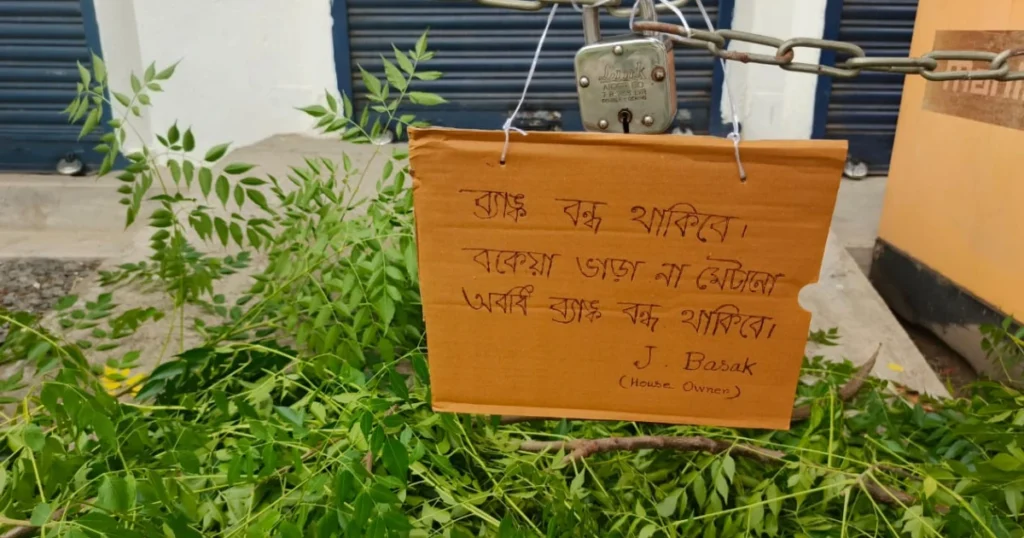 ব্যাঙ্ক বন্ধ থাকিবে।
বকেয়া ভাড়া না মেটানো
অবধি ব্যাঙ্ক বন্ধ থাকিবে।
J. Basak
(House Owner)